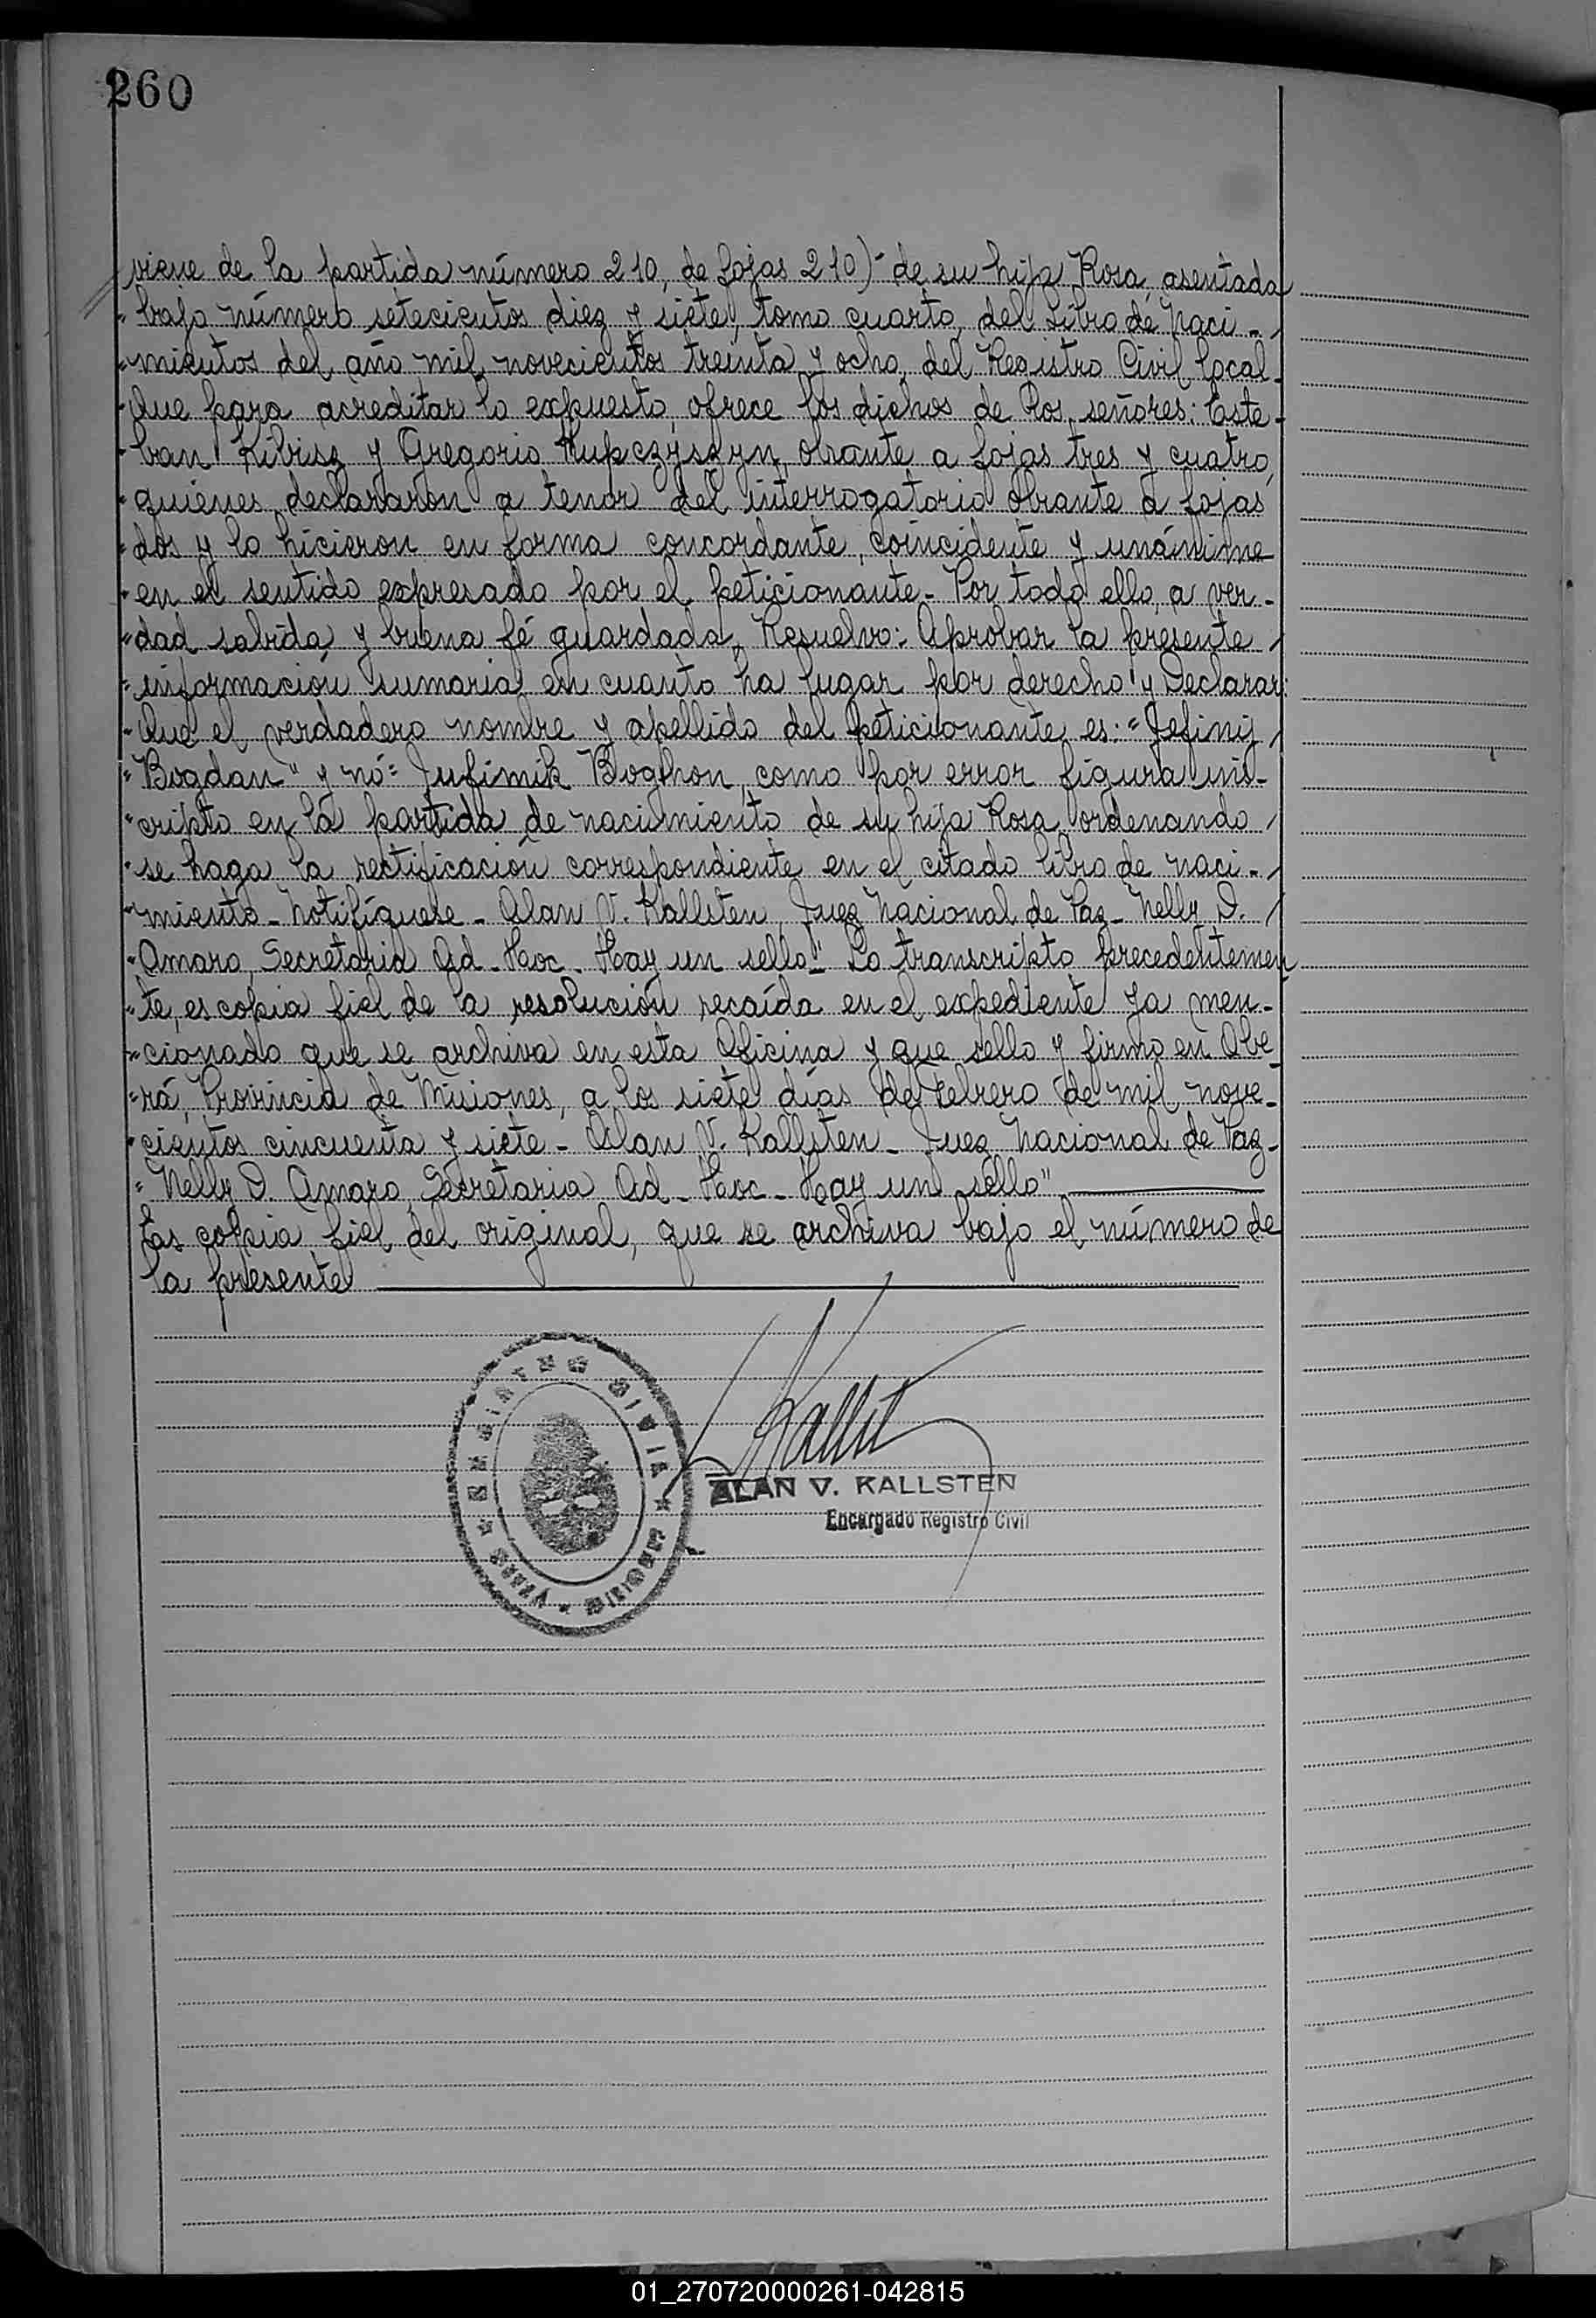 260
viene de la partida número 210, de fojas 210)- de su hija Rosa, asentada
"bajo número setecientos diez y siete, tomo cuarto, del Libro de Naci-
"mientos del año mil novecientos treinta y ocho, del Registro Civil local.
"Que para acreditar lo expuesto, ofrece los dichos de los señores: Este-
"ban Kibisz y Gregorio Hupczyszyn, obrante a fojas tres y cuatro,
"quienes declararon a tenor del interrogatorio obrante a fojas
"dos y lo hicieron en forma concordante, coincidente y unánime
"en el sentido expresado por el peticionante.- Por todo ello, a ver-
"dad sabida y buena fé guardada, Resuelvo: Aprobar la presente
"información sumaria en cuanto ha lugar por derecho y Declarar:
"Que el verdadero nombre y apellido del peticionante es: "Jefinij
"Bogdan" y nó= Jufimik Boghon, como por error figura ins-
"cripto en la partida de nacimiento de su hija Rosa, ordenando
"se haga la rectificación correspondiente en el citado libro de naci-
"miento - Notifíquese - Alan V. Kallsten, Juez Nacional de Paz - Nelly D.
"Amaro, Secretaria Ad-Hoc - Hay un sello" - Lo transcripto precedentemen
"te, es copia fiel de la resolución recaída en el expediente ya men-
"cionado que se archiva en esta Oficina y que sello y firmo en Obe-
"rá, Provincia de Misiones, a los siete días de Febrero de mil nove-
"cientos cincuenta y siete - Alan V. Kallsten - Juez Nacional de Paz -
"Nelly D. Amaro, Secretaria Ad-Hoc - Hay un sello"
Es copia fiel del original, que se archiva bajo el número de
la presente
ALAN V. KALLSTEN
Encargado Registro Civil
01_270720000261-042815